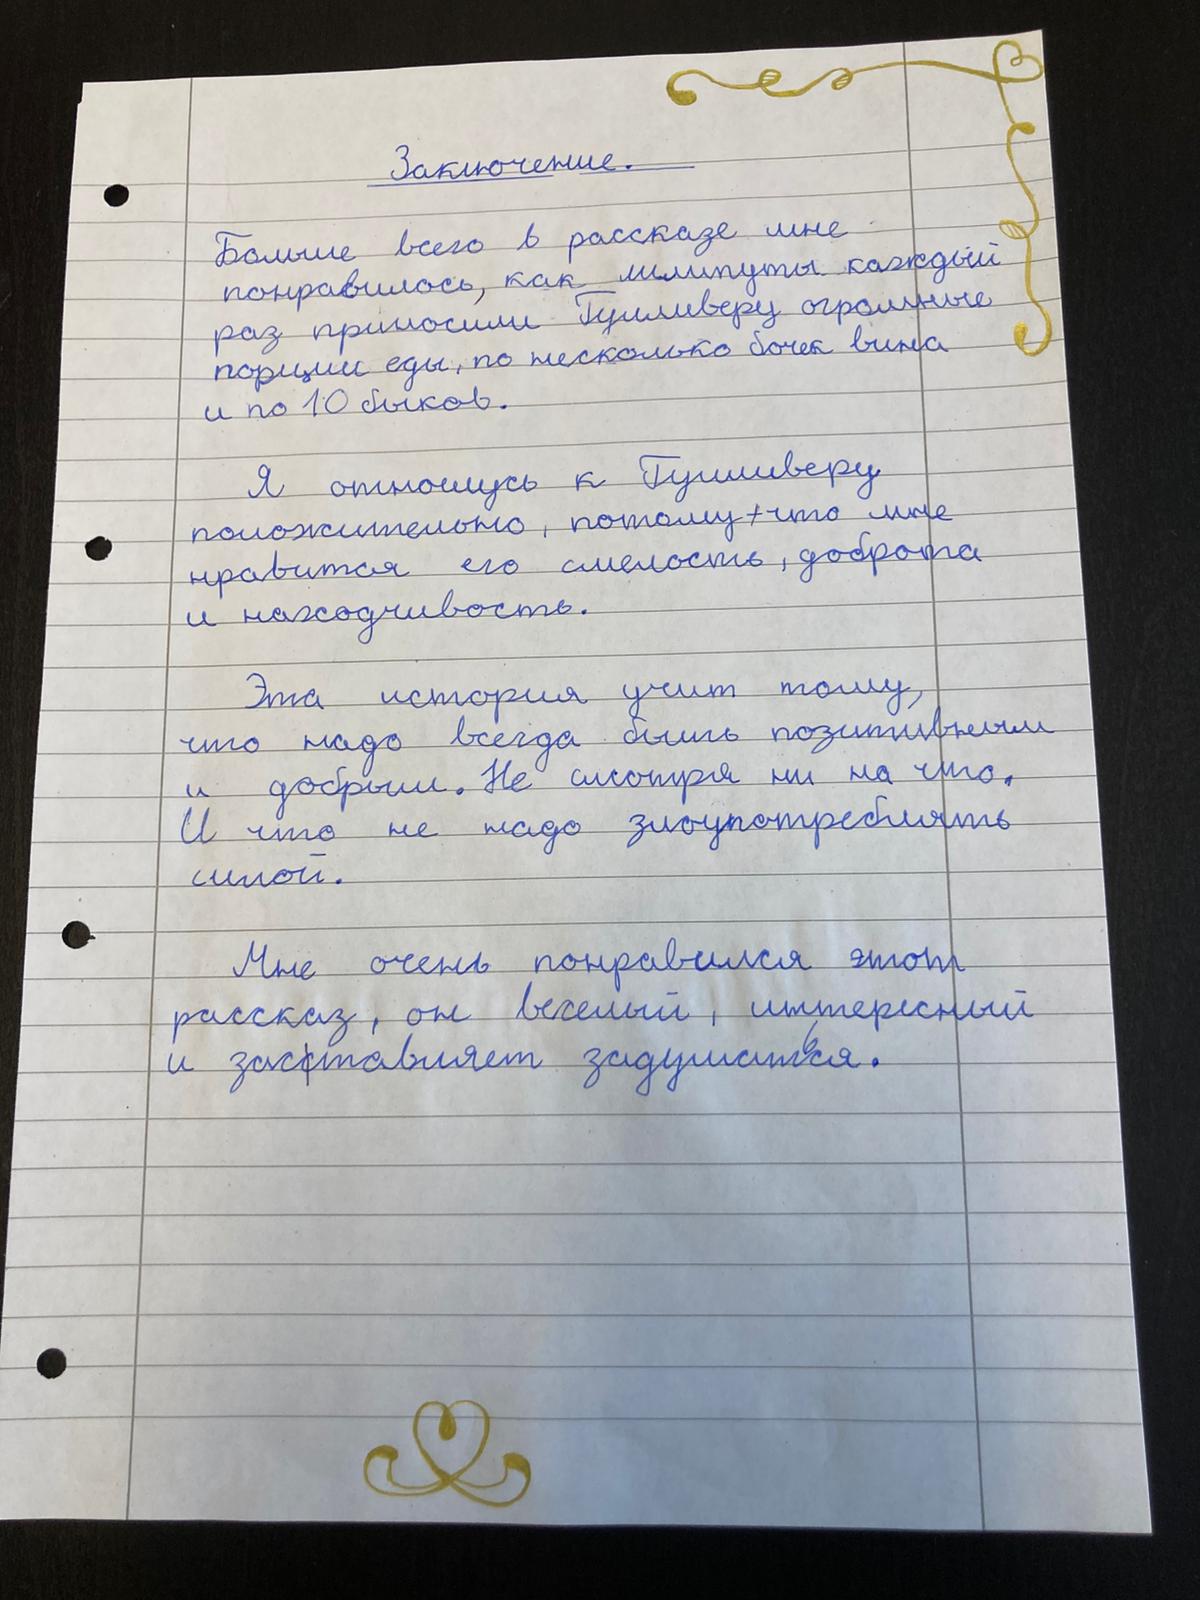 Заключение.
Больше всего в рассказе мне
понравилось, как лилипуты каждый
раз приносили Гулливеру огромные
порции еды, по несколько бочек вина
и по 10 быков.
Я отношусь к Гулливеру
положительно, потому что мне
нравится его смелость, доброта
и находчивость.
Эта история учит тому,
что надо всегда быть позитивным
и добрым. Не смотря ни на что.
И что не надо злоупотреблять
силой.
Мне очень понравился этот
рассказ, он веселый, интересный
и заставляет задуматься.